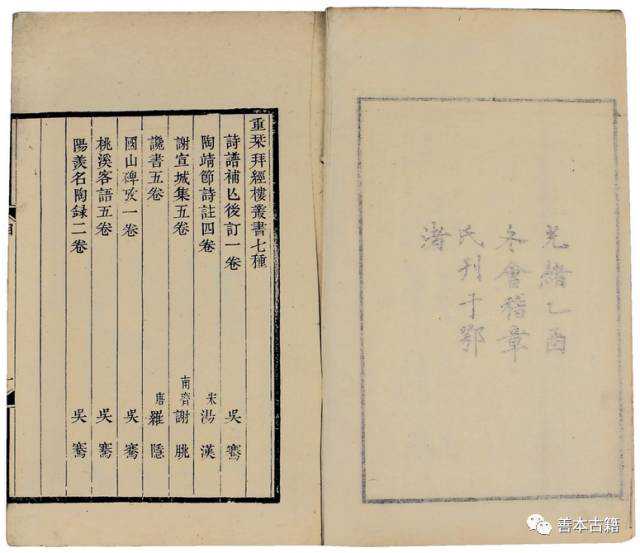 光緒乙酉
冬會稽章
氏刊于鄂
渚
重栞拜經樓叢書七種
詩譜補亾後訂一卷 吳騫
陶靖節詩註四卷 宋湯漢
謝宣城集五卷 南齊謝朓
讒書五卷 唐羅隱
國山碑攷一卷 吳騫
桃溪客語五卷 吳騫
陽羨名陶録二卷 吳騫
善本古籍